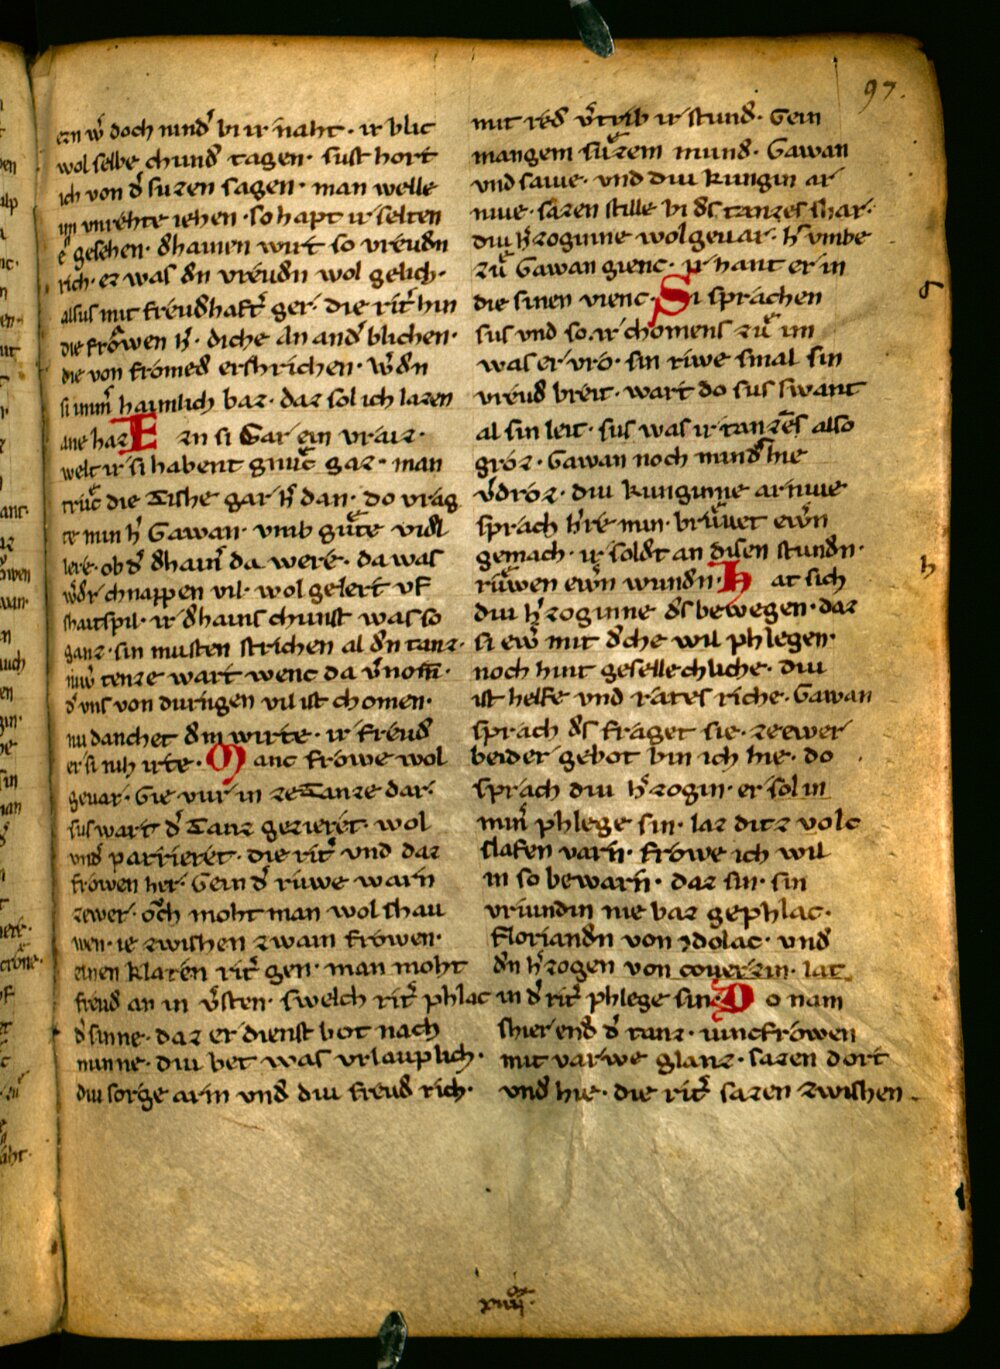 97.
ezn wͦ doch nindˀ bi ir naht · ir blic
wol selbe chunđ tagen · sust hort
ich von dˀ suzen sagen · man welle
im unrehte iehen · so hapt ir selten
eˀ gesehen · đhainen wirt so vreudn
rich · ez was dn vreudn wol gelich ·
alsus mit freudhaftˀ ger · die ritˀ hin
die frowen hˀ · diche an andˀ blichen ·
die von fromeđ erschrichen · wˀdn
si immˀ haimlich baz · daz sol ich lazen
ane haz E zn si Gar ein vraiz ·
welt ir si habent gnuc gaz · man
truc die Tishe gar hˀ dan · do vrag
te min hˀ Gawan · vmb gute vidl
lere · ob dˀ đhainˀ da were · da was
wˀdˀ chnappen vil · wol gelert vf
shaitspil · ir đhains chunst was so
ganz · sin musten strichen al dn tanz ·
niwˀ tenze wart wenc da vˀnomˀ ·
dˀ vns von durngen vil ist chomen ·
nu danchet dm wirte · ir freuđ
er si nih irte · M anc frowe wol
gevar · Gie vur in ze Tanze dar ·
sus wart dˀ Tanz gezieret · wol
vnđ parrieret · die ritˀ vnd daz
frowen her · Gein dˀ riuwe warn
zewer · och moht man wol shau
wen · ie zwishen zwain frowen ·
einen klaren ritˀ gen · man moht
freuđ an in vˀsten · swelch ritˀ phlac
dˀ sinne · daz er dienst bot nach
minne · diu bet was vrlauplich ·
diu sorge arm vnđ diu freuđ rich ·
mit ređ vˀtrib ir stunđ · Gein
mangem suzem munđ · Gawan
vnd saive · vnd diu kungin ar
nive · sazen stille bi ds tanzes shar ·
diu hˀzoginne wolgevar · hˀ vmbe
zu Gawan gienc · ir hant er in
die sinen vienc · S i sprachen
sus vnd so · ir chomens zu im
was er vro · sin riwe smal sin
vreuđ breit · wart do sus swant
al sin leit · sus was ir tanzes also
groz · Gawan noch mindˀ hie
vˀdroz · diu kunginne arnive
sprach hˀre min · bruvet ewˀn
gemach · ir soldt an disen stundn ·
ruwen ewˀn wundn · h at sich
diu hˀzoginne ds bewegen · daz
si ewˀ mit dche wil phlegen ·
noch hint gesellechliche · diu
ist helfe vnd rates riche · Gawan
sprach ds fraget sie · ze ewer
beider gebot bin ich hie · do
sprach diu hˀzogin · er sol in
minˀ phlege sin · laz ditz volc
slafen varn · frowe ich wil
in so bewarn · daz sin · sin
vriundin nie baz gephlac ·
floriandn von ydolac · vnđ
dn hˀzogen von coverzin · lat
in dˀ ritˀ phlege sin · D o nam
shier enđ dˀ tanz · iuncfrowen
mit varwe glanz · sazen dort
vnđ hie · die ritˀ sazen zwishen
s
h